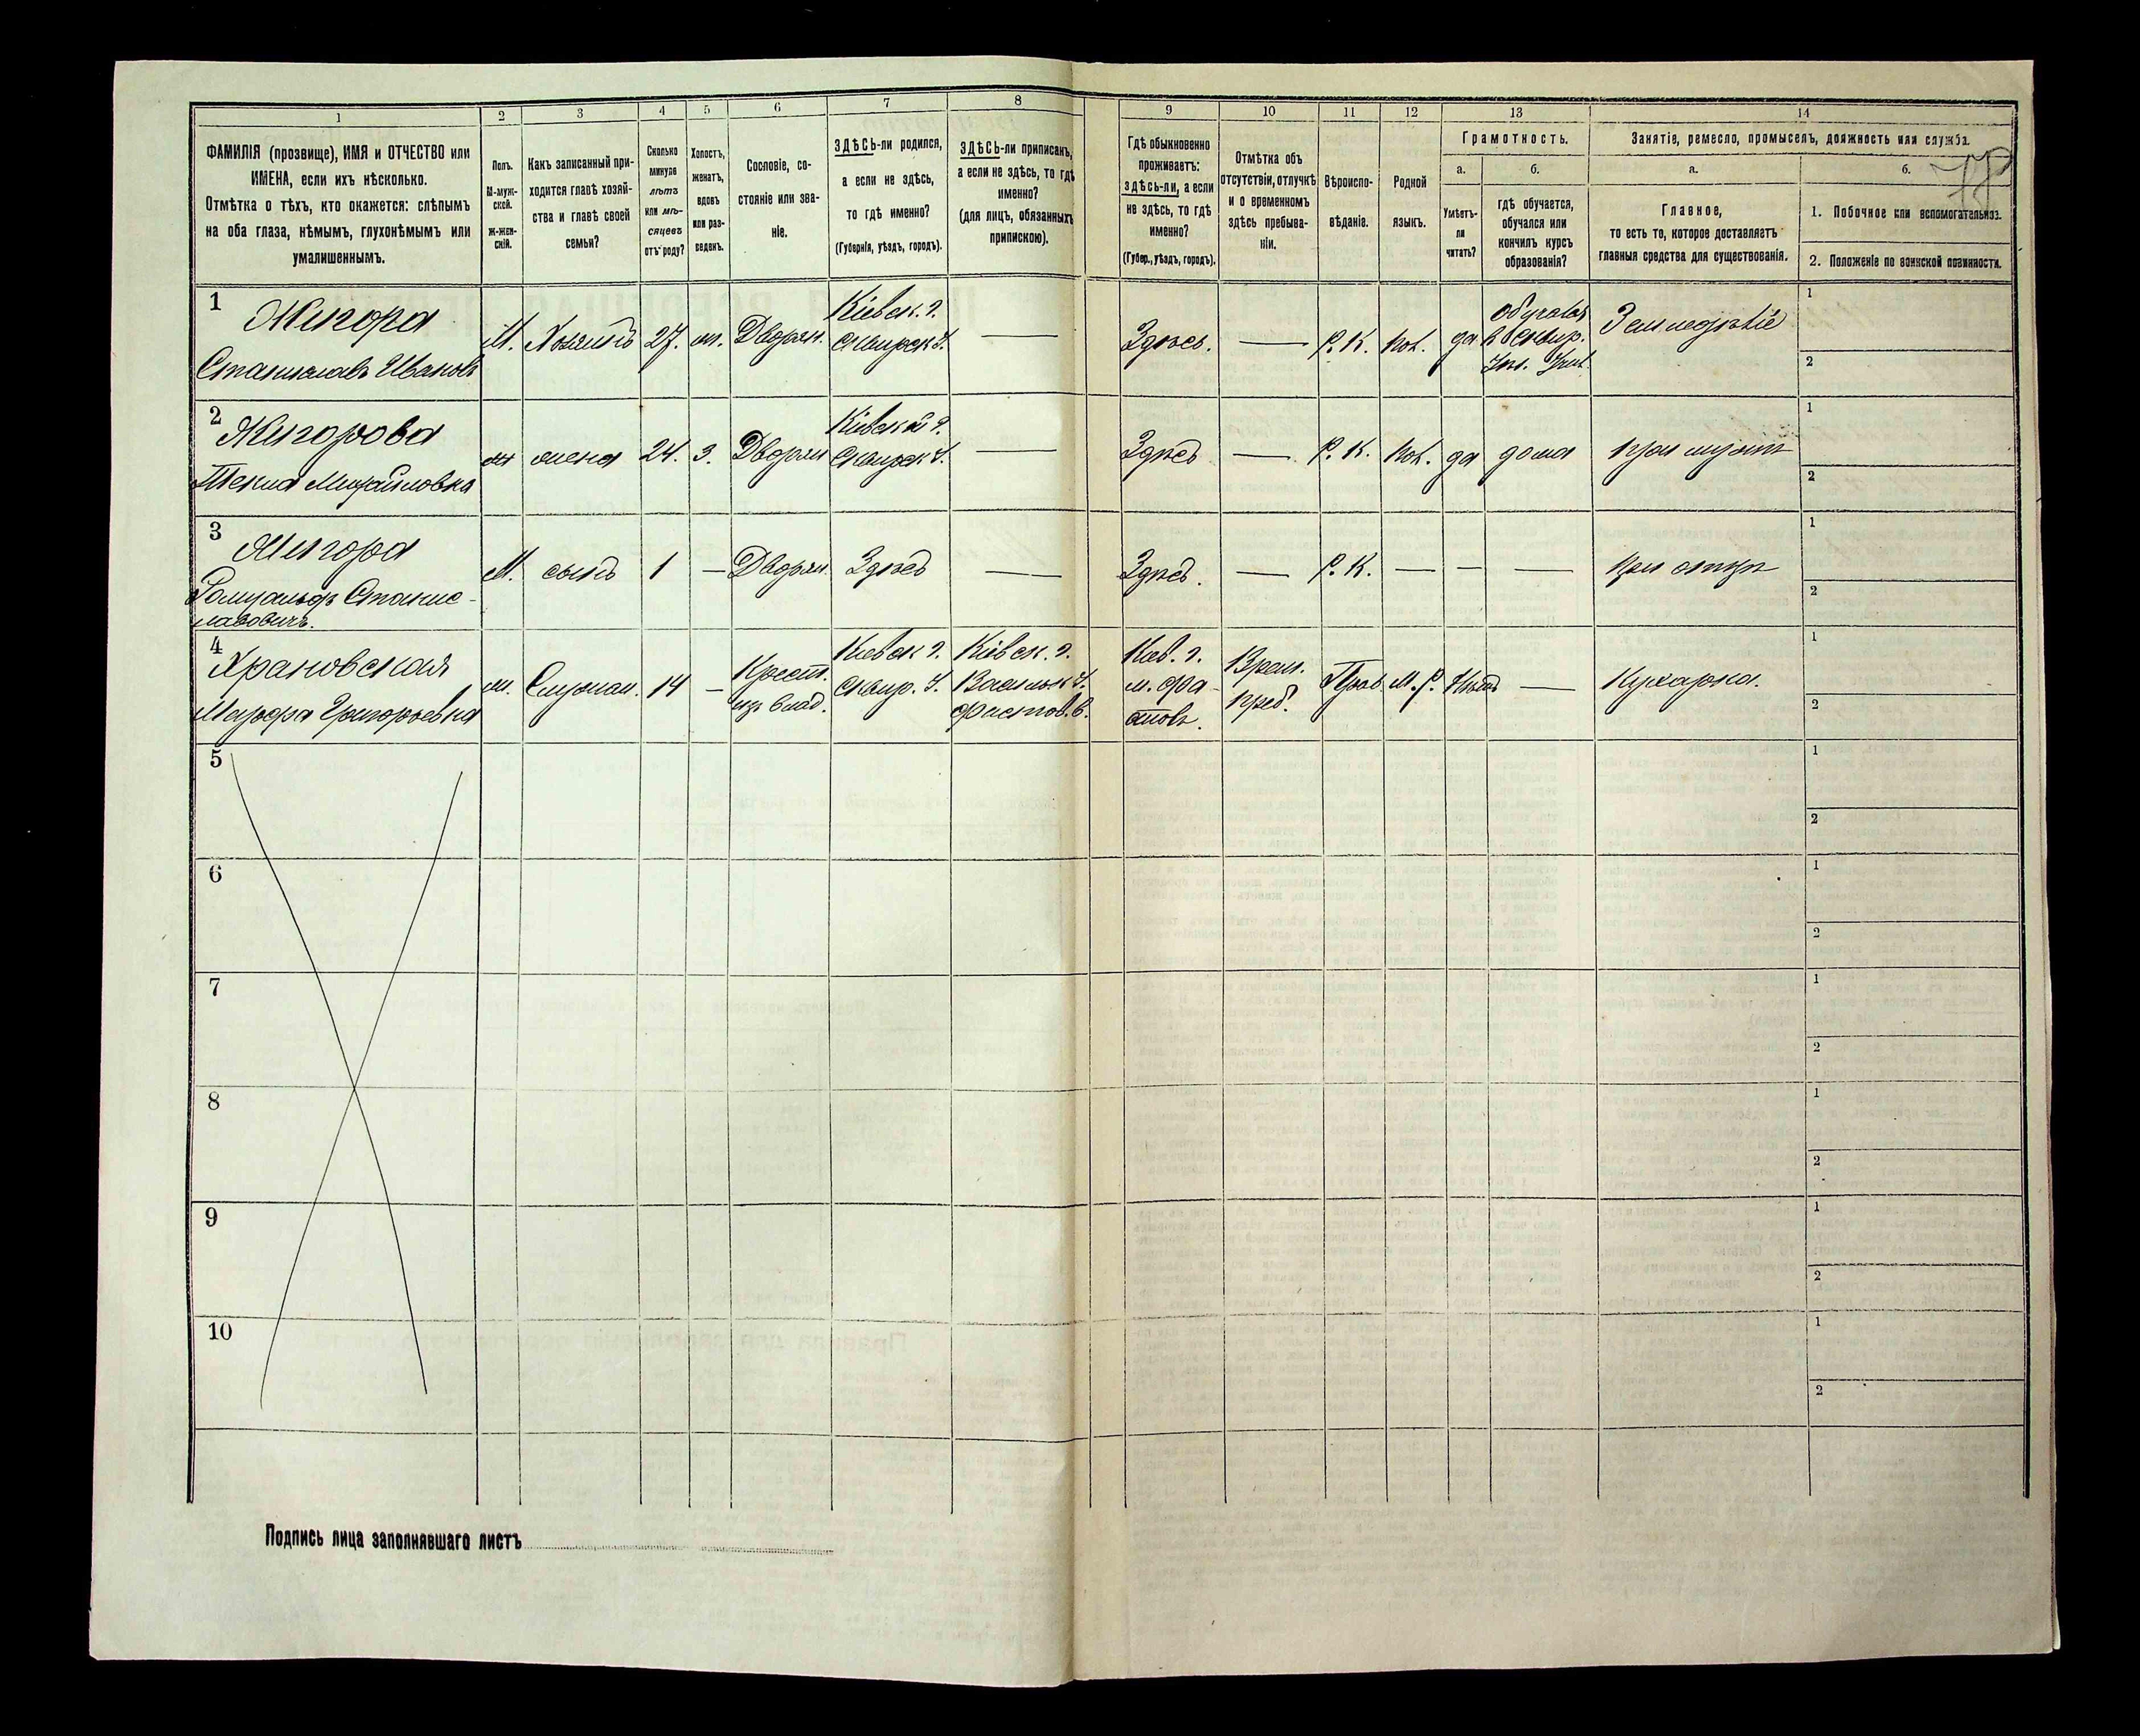 1 2 3 4 5 6 7 8 9 10 11 12 13 14
ФАМИЛІЯ (прозвище), ИМЯ и ОТЧЕСТВО или
ИМЕНА, если ихъ нѣсколько.
Отмѣтка о тѣхъ, кто окажется: слѣпымъ
на оба глаза, нѣмымъ, глухонѣмымъ или
умалишеннымъ.
Полъ.
М-муж-
ской.
Ж-жен-
скій.
Какъ записанный при-
ходится главѣ хозяй-
ства и главѣ своей
семьи?
Сколько
минуло
лѣтъ
или мѣ-
сяцевъ
отъ роду?
Холостъ,
женатъ,
вдовъ
или раз-
веденъ.
Сословіе, со-
стояніе или зва-
ніе.
ЗДѢСЬ-ли родился,
а если не здѣсь,
то гдѣ именно?
(Губернія, уѣздъ, городъ).
ЗДѢСЬ-ли приписанъ,
а если не здѣсь, то гдѣ
именно?
(для лицъ, обязанныхъ
припискою).
Гдѣ обыкновенно
проживаетъ:
здѣсь-ли, а если
не здѣсь, то гдѣ
именно?
(Губер., уѣздъ, городъ).
Отмѣтка объ
отсутствіи, отлучкѣ
и о временномъ
здѣсь пребыва-
ніи.
Вѣроиспо-
вѣданіе.
Родной
языкъ.
Грамотность.
а.
Умѣетъ-
ли
читать?
б.
гдѣ обучается,
обучался или
кончилъ курсъ
образованія?
Занятіе, ремесло, промыселъ, должность или служба.
а.
Главное,
то есть то, которое доставляетъ
главныя средства для существованія.
б.
1. Побочное или вспомогательное.
2. Положеніе по воинской повинности.
1
Жигора
Станиславъ Ивановъ
М. Хозяинъ 27. ж. Дворян.
Кіевск. г.
Сквирск. у.
—
Здѣсь. — Р. К. Пол. да
Обучался
в Сквир.
Земледѣліе
1
2
2
Жигорова
Текля Михайловна
ж жена 24. З. Дворян
Кіевской г.
Сквирск. у.
—
Здѣсь — Р. К. Пол. да дома при мужѣ
1
2
3
Жигора
Ромуальдъ Станис-
лавовичъ.
М. сынъ 1 — Дворян. Здѣсь —
Здѣсь. — Р. К. — — — при отцѣ
1
2
4
Храновская
Марфа Григорьевна
ж. Служан. 14 —
Крест.
изъ влад.
Киевск г.
Сквир. у.
Кіевск. г.
Васильк у.
Фастов. в.
Киев. г.
м. Фа-
стовъ.
Врем.
преб.
Прав. М. Р. Нѣтъ — Кухарка.
1
2
5
1
2
6
1
2
7
1
2
8
1
2
9
1
2
10
1
2
Подпись лица заполнявшаго листъ